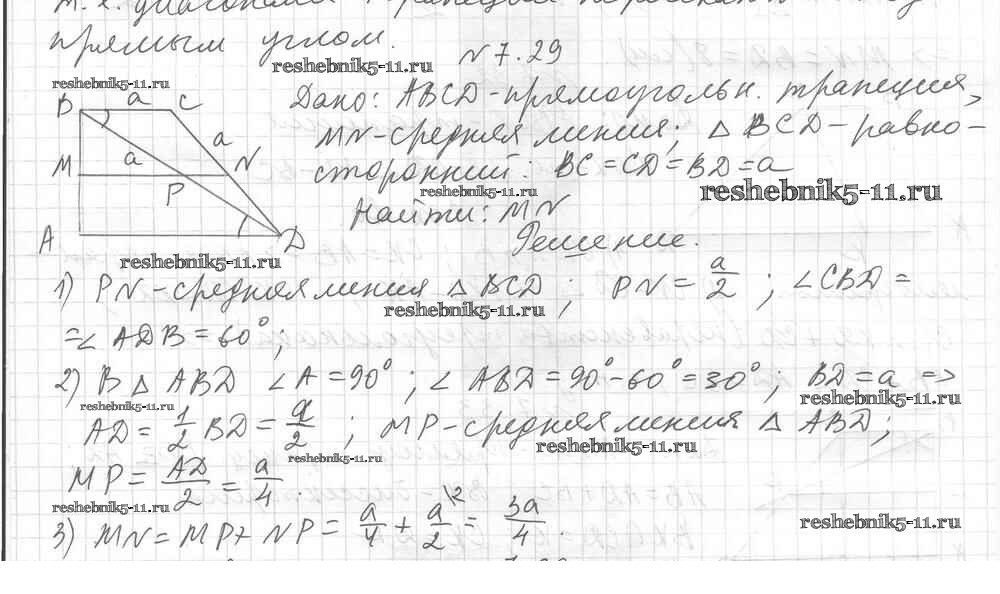 т.к. диагонали трапеции
прямым углом.
N 7.29
reshebnik5-11.ru
reshebnik5-11.ru
B a C
Дано: ABCD - прямоугольн. трапеция,
a
MN - средняя линия; △ BCD - равно-
M a N
сторонний: BC = CD = BD = a
P
reshebnik5-11.ru
reshebnik5-11.ru
Найти: MN
A D
Решение.
reshebnik5-11.ru
1) PN - средняя линия △ BCD ; PN = a/2 ; ∠ CBD =
reshebnik5-11.ru
= ∠ ADB = 60°;
2) В △ ABD ∠ A = 90° ; ∠ ABD = 90° - 60° = 30° ; BD = a =>
reshebnik5-11.ru
reshebnik5-11.ru
AD = 1/2 BD = a/2 ; MP - средняя линия △ ABD ;
reshebnik5-11.ru
reshebnik5-11.ru
MP = AD/2 = a/4 .
reshebnik5-11.ru
reshebnik5-11.ru
3) MN = MP + NP = a/4 + a\2/2 = 3a/4 .